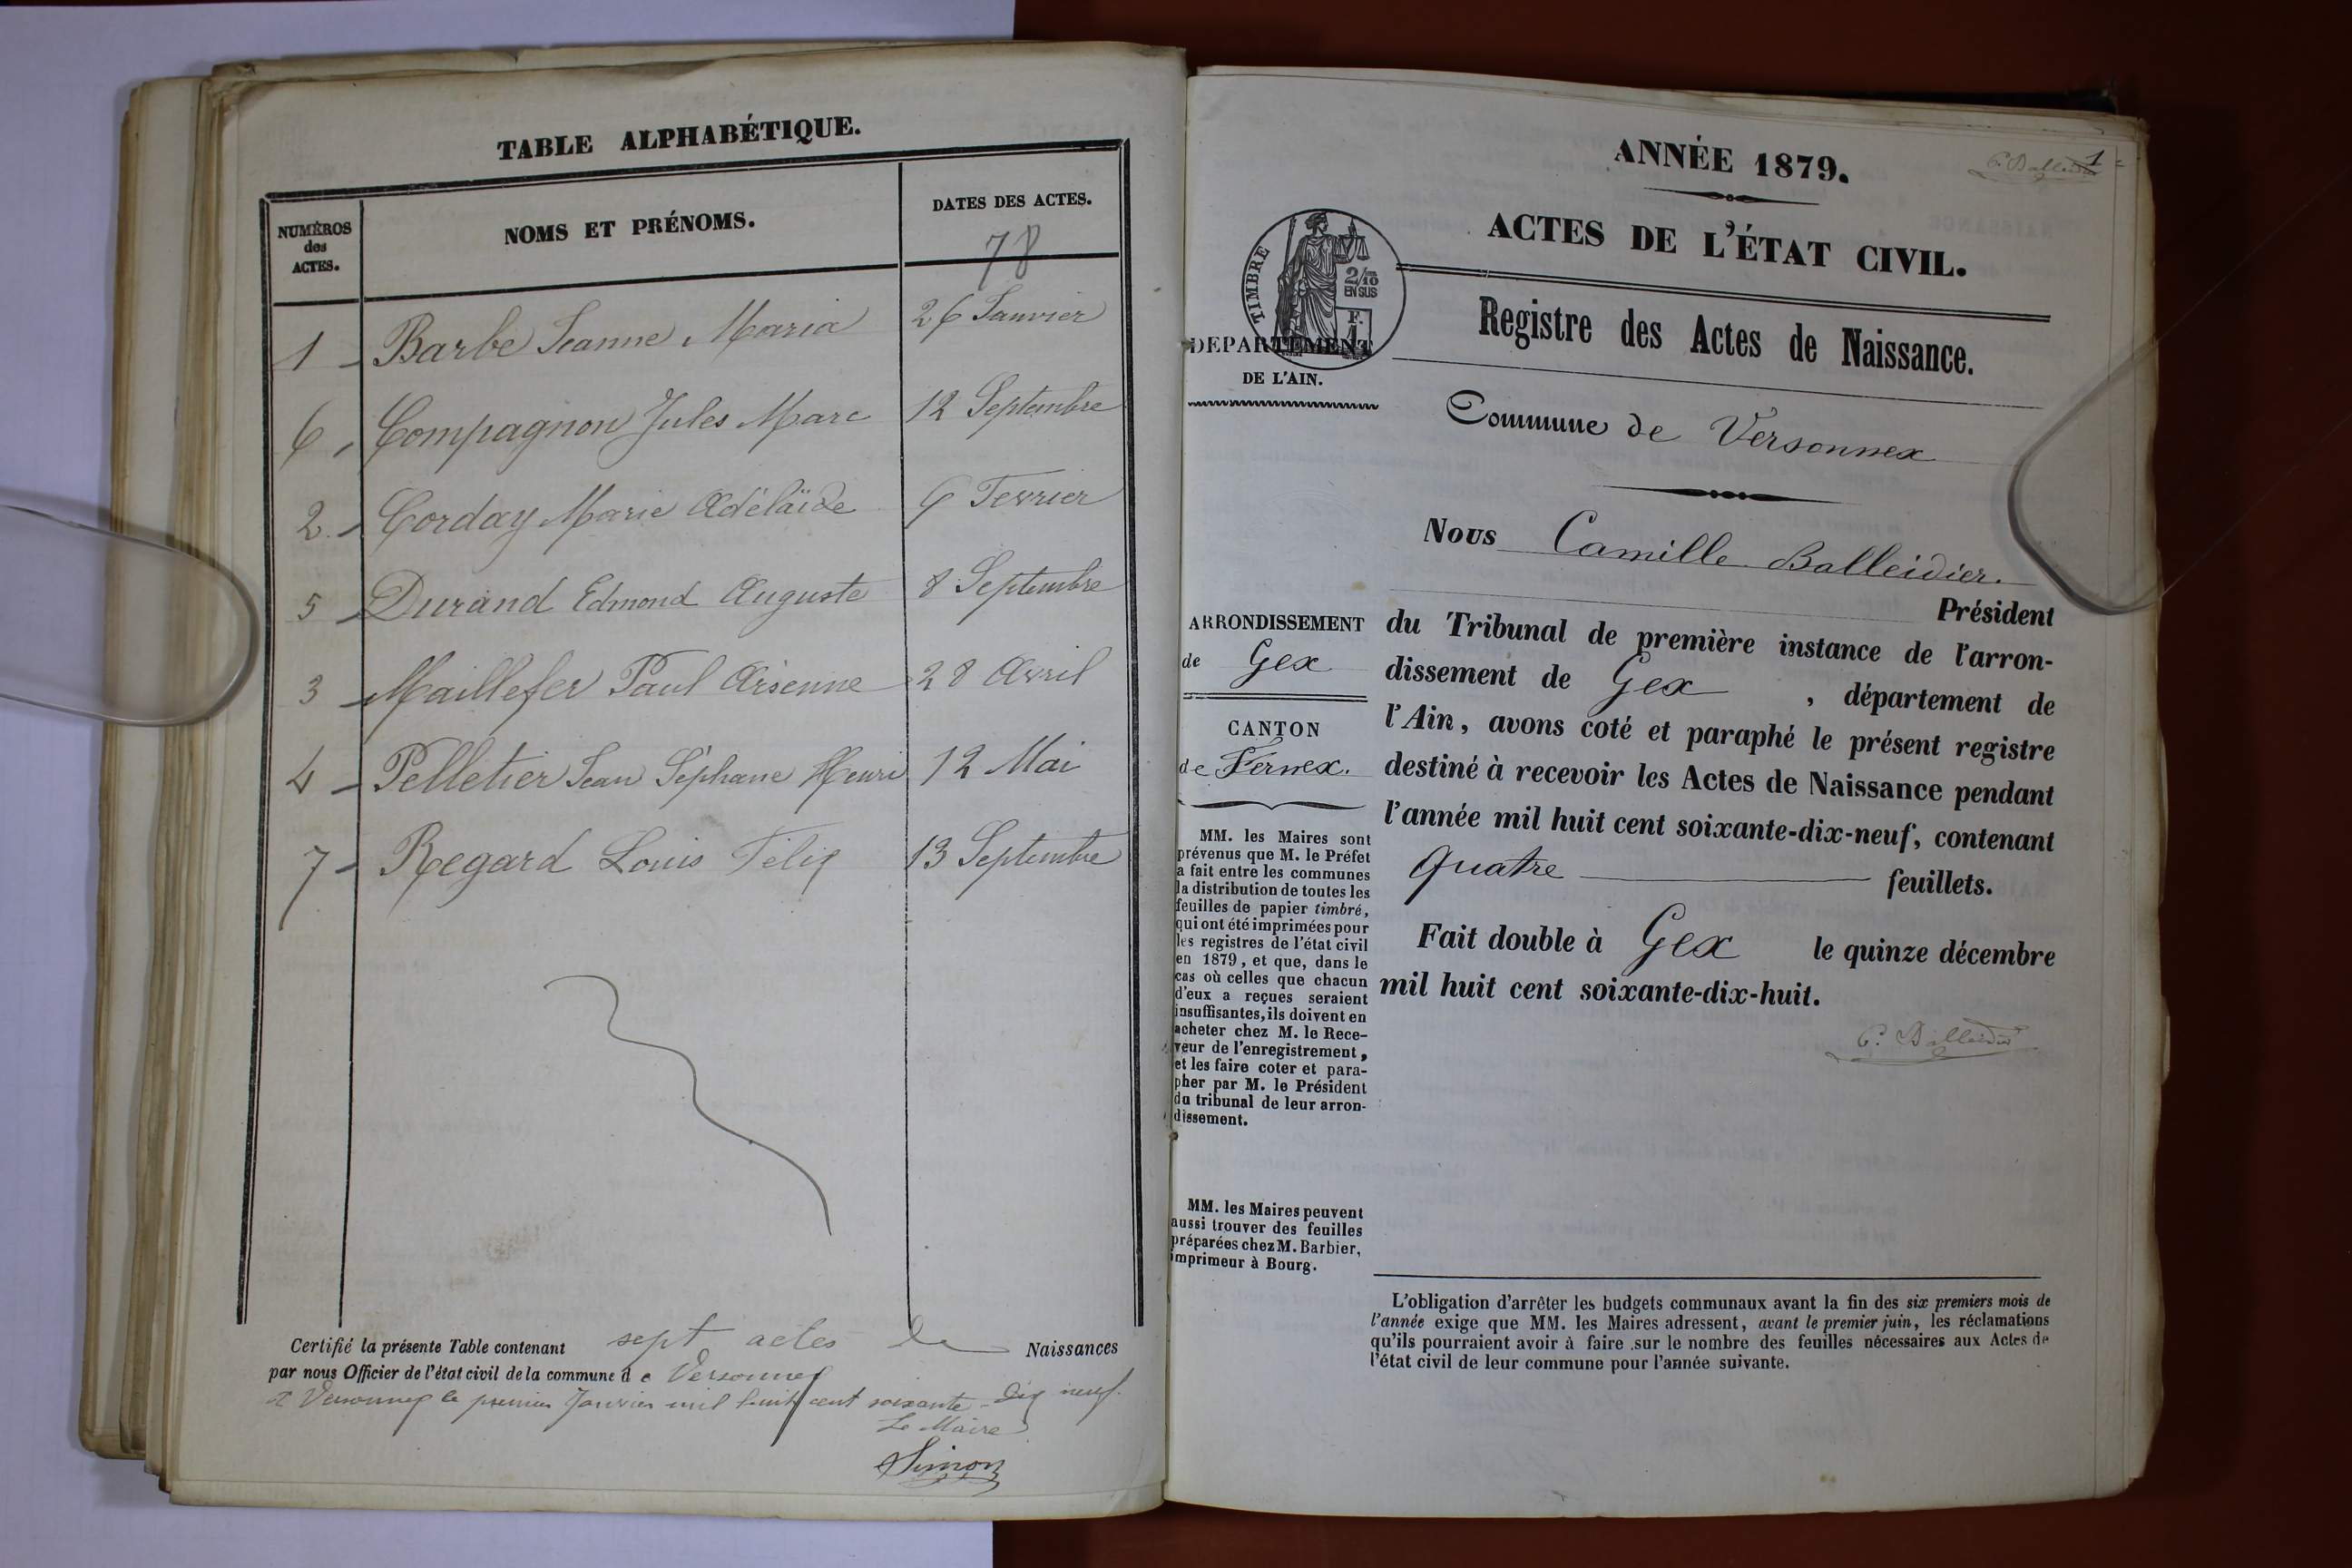 TABLE ALPHABÉTIQUE.
NUMÉROS
des
ACTES.
NOMS ET PRÉNOMS.
DATES DES ACTES.
78
1 - Barbe Jeanne Maria 26 Janvier
6 - Compagnon Jules Marc 12 Septembre
2 - Corday Marie Adélaïde 6 Fevrier
5 - Durand Edmond Auguste 8 Septembre
3 - Maillefer Paul Arsenne 28 Avril
4 - Pelletier Jean Séphane Henri 12 Mai
7 - Regard Louis Félix 13 Septembre
Certifié la présente Table contenant sept actes de Naissances
par nous Officier de l'état civil de la commune de Versonnex
à Versonnex le premier Janvier mil huit cent soixante-dix neuf.
Le Maire
Simon
1
C. Balleidier
ANNÉE 1879.
ACTES DE L'ÉTAT CIVIL.
TIMBRE
2/10
EN SUS
F.
1
Registre des Actes de Naissance.
DEPARTEMENT
DE L'AIN.
Commune de Versonnex
Nous Camille Balleidier.
Président
ARRONDISSEMENT
de Gex
CANTON
de Fernex.
du Tribunal de première instance de l'arron-
dissement de Gex , département de
l'Ain, avons coté et paraphé le présent registre
destiné à recevoir les Actes de Naissance pendant
l'année mil huit cent soixante-dix-neuf, contenant
Quatre feuillets.
Fait double à Gex le quinze décembre
mil huit cent soixante-dix-huit.
C. Balleidier
MM. les Maires sont
prévenus que M. le Préfet
a fait entre les communes
la distribution de toutes les
feuilles de papier timbré,
qui ont été imprimées pour
les registres de l'état civil
en 1879, et que, dans le
cas où celles que chacun
d'eux a reçues seraient
insuffisantes, ils doivent en
acheter chez M. le Rece-
veur de l'enregistrement,
et les faire coter et para-
pher par M. le Président
du tribunal de leur arron-
dissement.
MM. les Maires peuvent
aussi trouver des feuilles
préparées chez M. Barbier,
imprimeur à Bourg.
L'obligation d'arrêter les budgets communaux avant la fin des six premiers mois de
l'année exige que MM. les Maires adressent, avant le premier juin, les réclamations
qu'ils pourraient avoir à faire sur le nombre des feuilles nécessaires aux Actes de
l'état civil de leur commune pour l'année suivante.